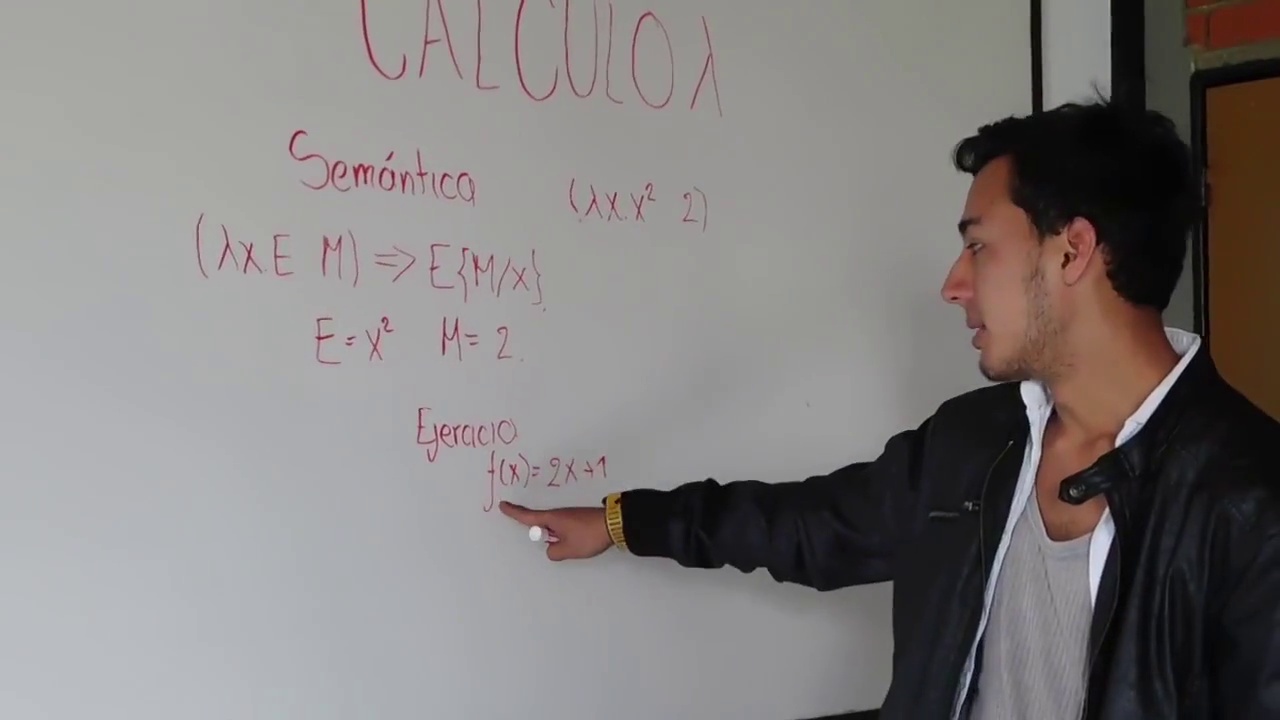 CALCULO λ
Semántica
(λx.x² 2)
(λx.E M) => E{M/x}
E=x² M=2.
Ejercicio
f(x)=2x+1